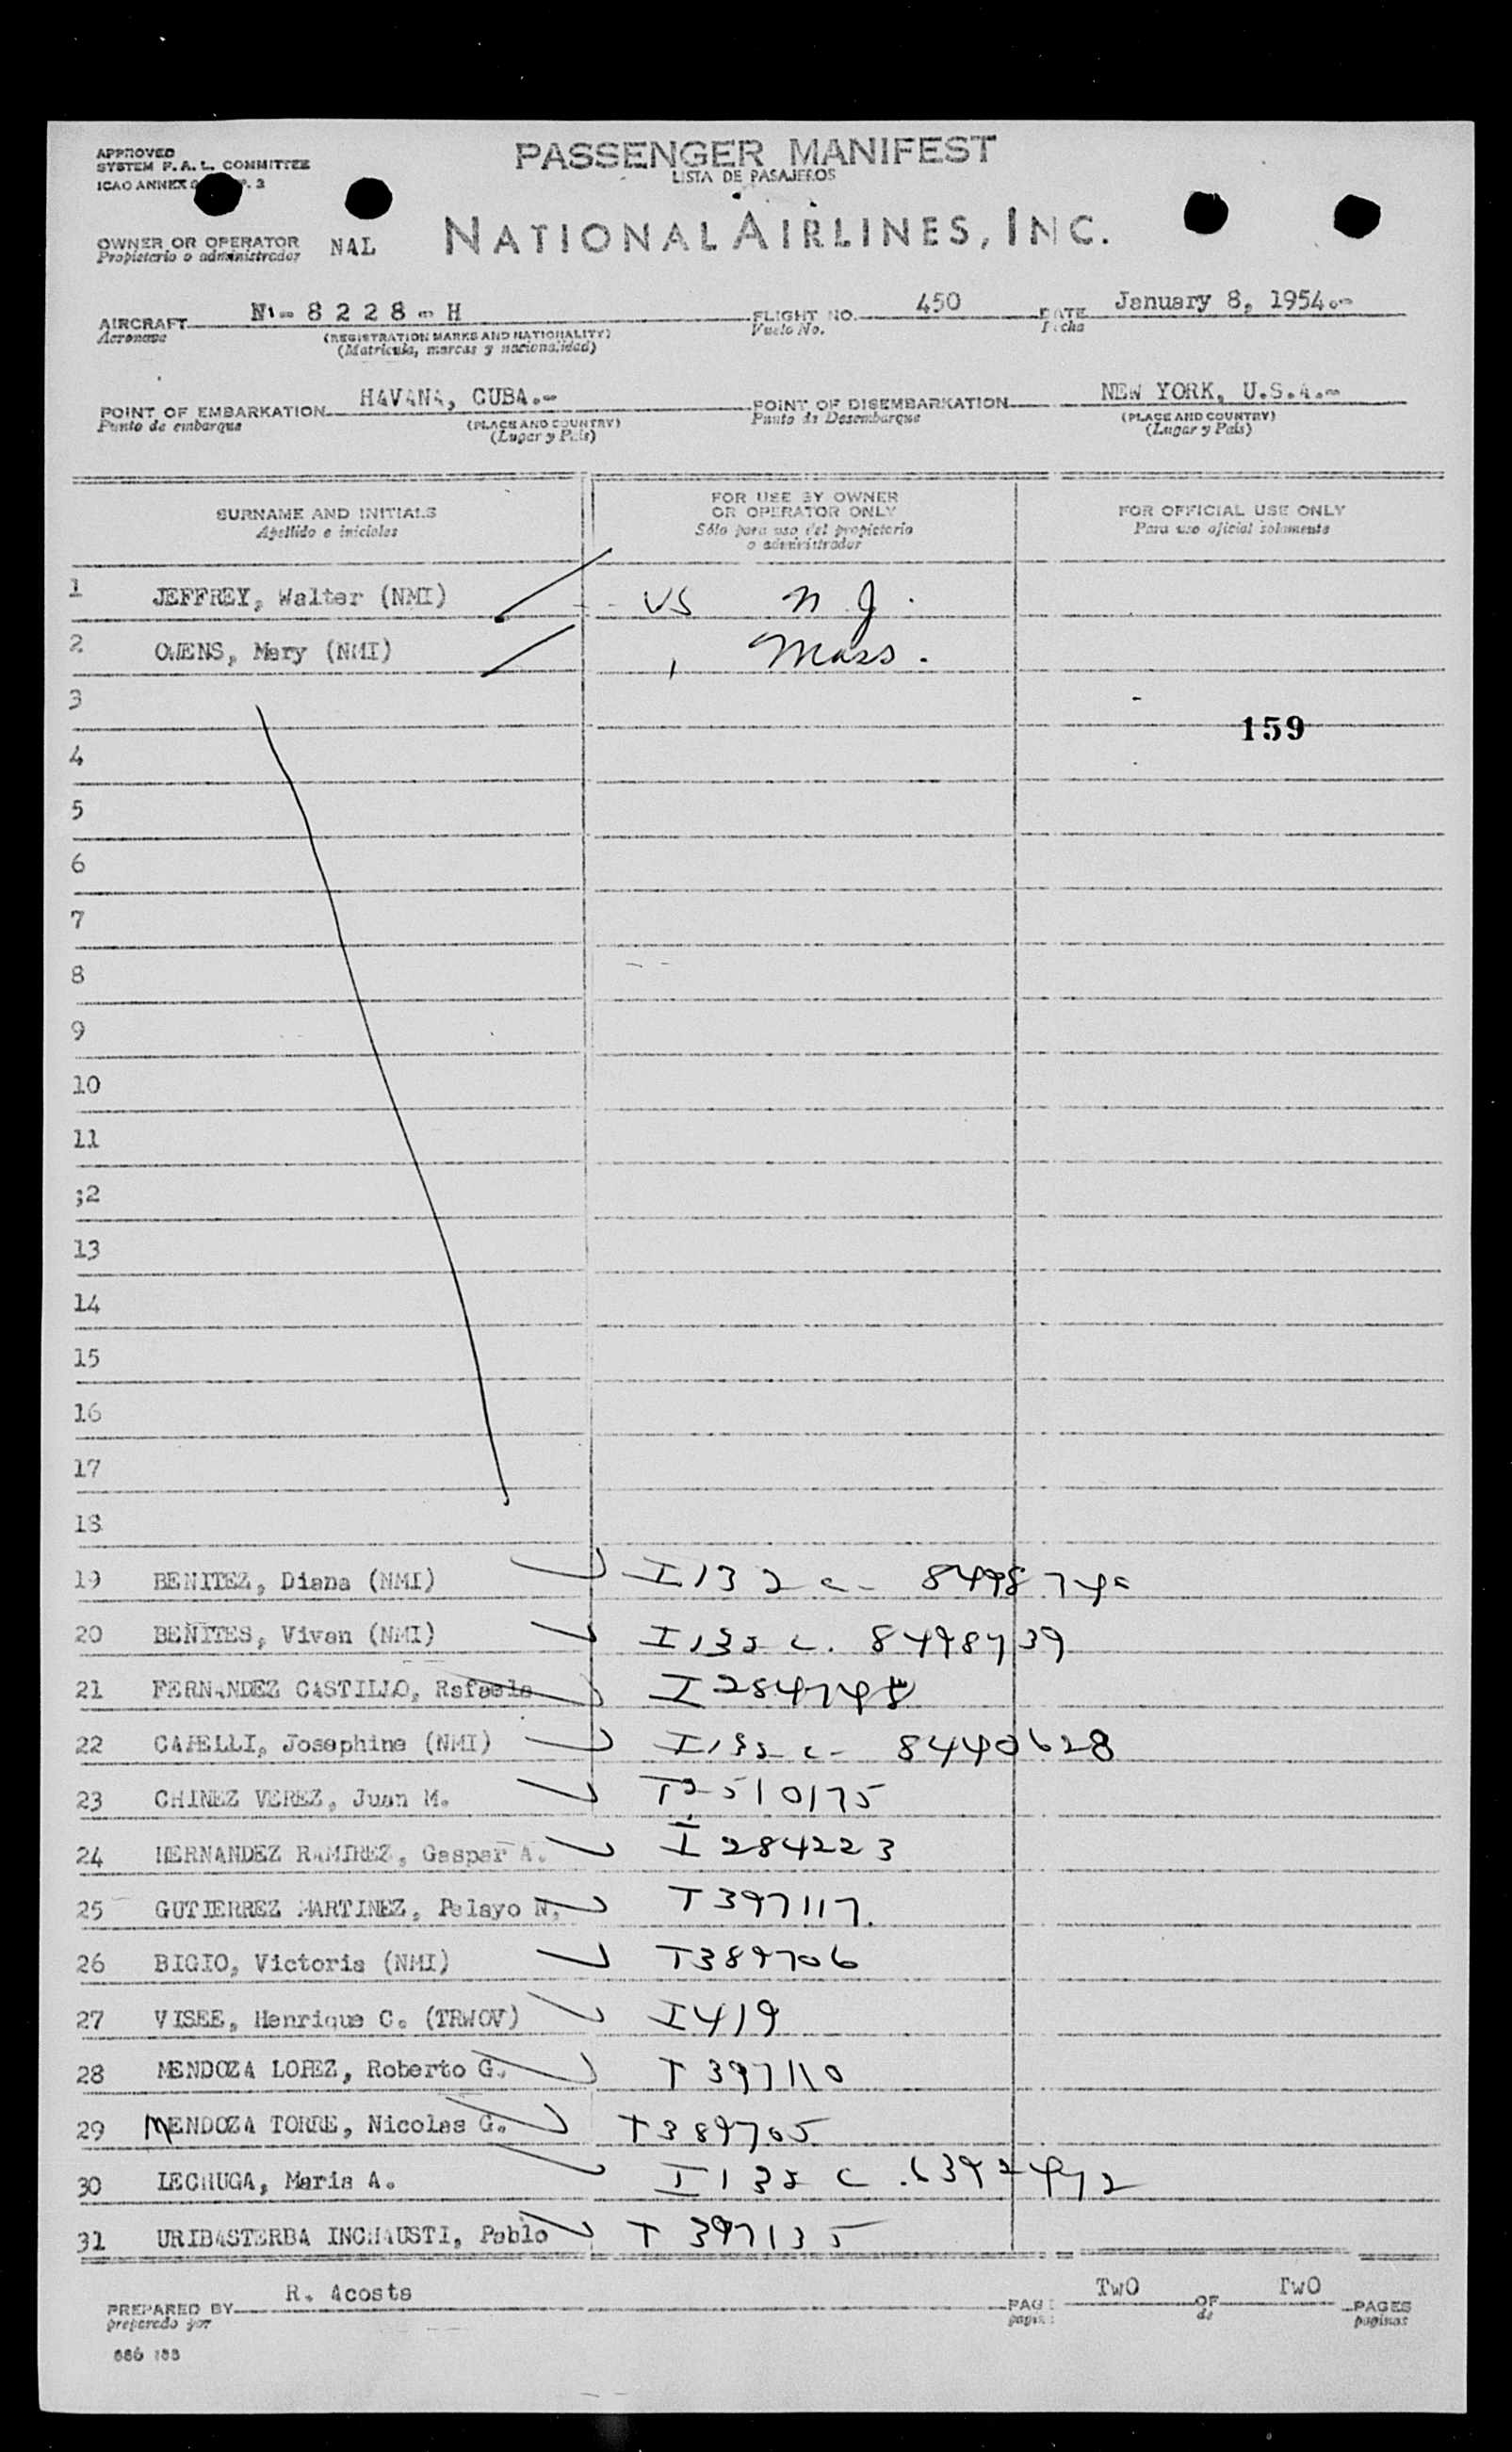 APPROVED
SYSTEM F.A.L. COMMITTEE
ICAO ANNEX
PASSENGER MANIFEST
LISTA DE PASAJEROS
OWNER OR OPERATOR NAL
Propietario o administrador
NATIONAL AIRLINES, INC.
AIRCRAFT N - 8 2 2 8 - H FLIGHT NO. 450 DATE January 8, 1954.-
Aeronave (REGISTRATION MARKS AND NATIONALITY) Vuelo No. Fecha
(Matricula, marcas y nacionalidad)
POINT OF EMBARKATION HAVANA, CUBA.- POINT OF DISEMBARKATION NEW YORK, U.S.A.-
Punto de embarque (PLACE AND COUNTRY) Punto de Desembarque (PLACE AND COUNTRY)
(Lugar y Pais) (Lugar y Pais)
SURNAME AND INITIALS FOR USE BY OWNER OR OPERATOR ONLY FOR OFFICIAL USE ONLY
Apellido e iniciales Sólo para uso del propietario o administrador Para uso oficial solamente
1 JEFFREY, Walter (NMI) US N.J.
2 OWENS, Mary (NMI) Mass.
3
159
4
5
6
7
8
9
10
11
;2
13
14
15
16
17
18
19 BENITEZ, Diana (NMI) I132 c-
20 BENITES, Vivan (NMI) I132 c. 8498739
21 FERNANDEZ CASTILLO, Rafaela
22 CAPELLI, Josephine (NMI) I132 c- 8440628
23 CHINEZ VEREZ, Juan M. 510175
24 HERNANDEZ RAMIREZ, Gaspar A. I 284223
25 GUTIERREZ MARTINEZ, Pelayo N. T 397117.
26 BIGIO, Victoria (NMI) T389706
27 VISEE, Henrique C. (TRWOV) I419
28 MENDOZA LOPEZ, Roberto G. T 397110
29 MENDOZA TORRE, Nicolas G. T389705
30 LECHUGA, Maria A. I 132 c .6392492
31 URIBASTERBA INCHAUSTI, Pablo T 397135
PREPARED BY R. Acosta PAGE TwO OF TwO PAGES
preparado por pagina de paginas